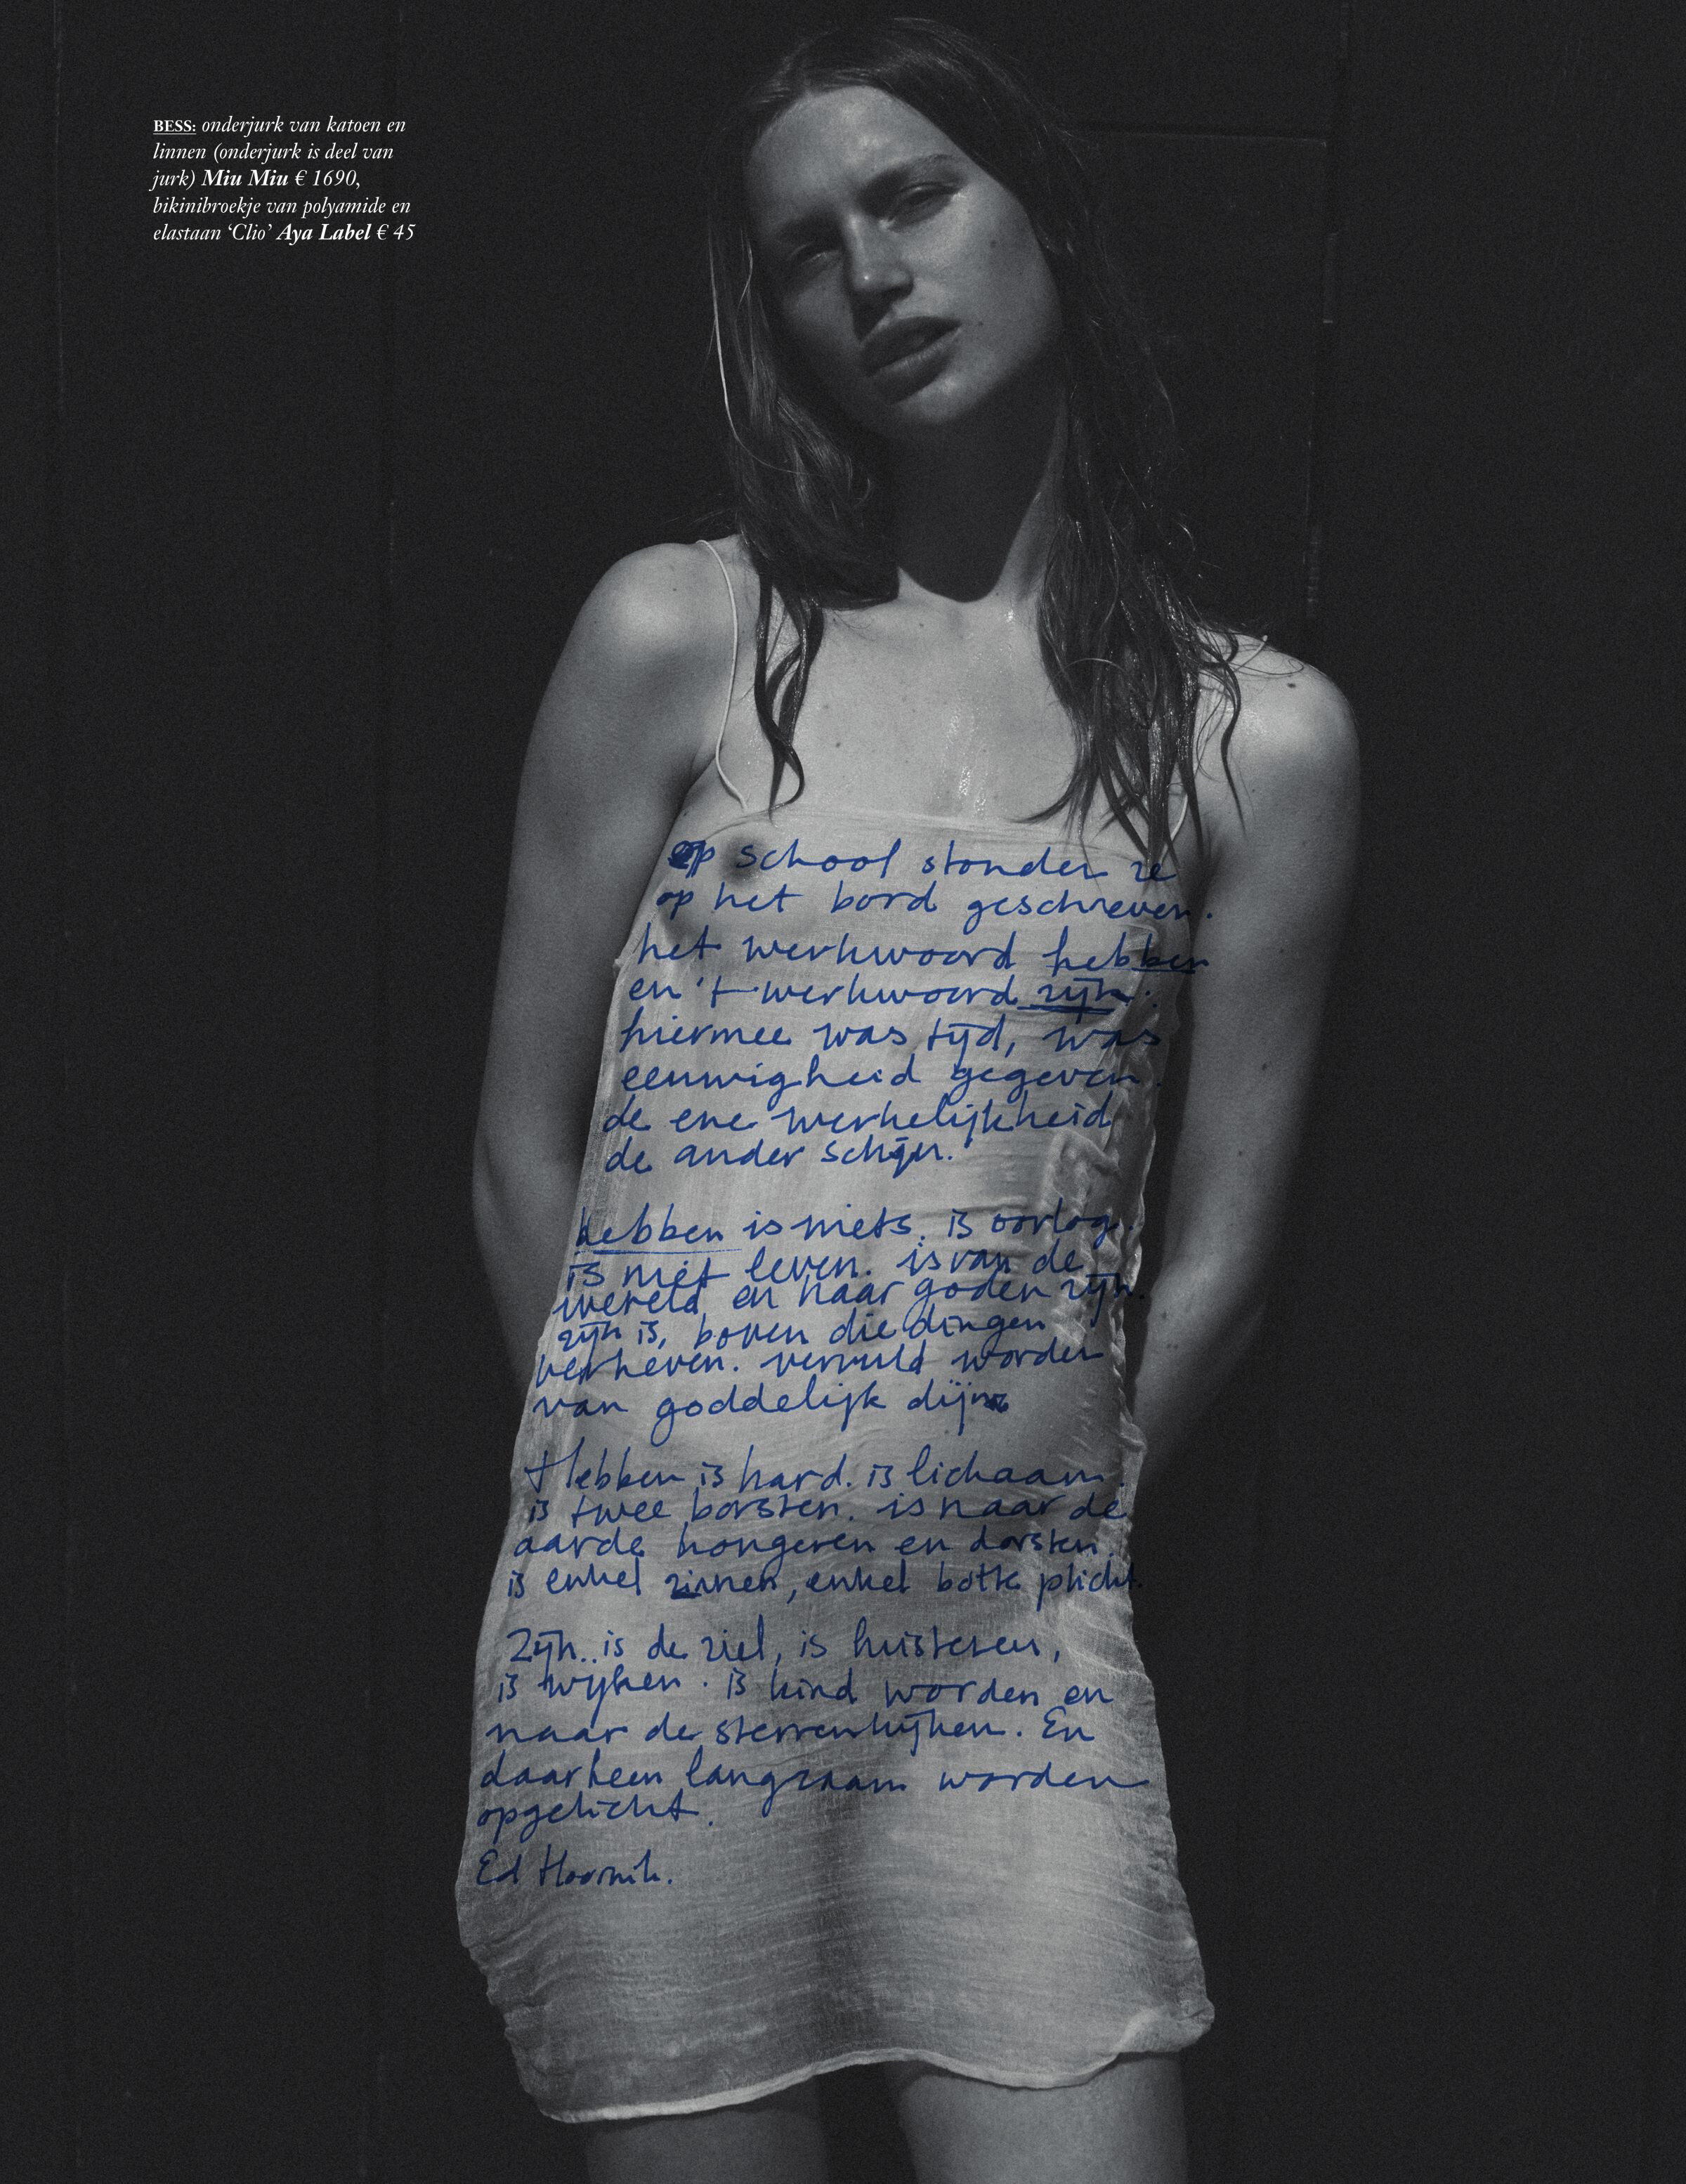 BESS: onderjurk van katoen en
linnen (onderjurk is deel van
jurk) Miu Miu € 1690,
bikinibroekje van polyamide en
elastaan ‘Clio’ Aya Label € 45
op school stonden ze
op het bord geschreven.
het werkwoord hebben
en 't werkwoord zijn.
hiermee was tijd, was
eeuwigheid gegeven.
de ene werkelijkheid
de ander schijn.
hebben is niets. is oorlog.
is niet leven. is van de
wereld en haar goden zijn.
zijn is, boven die dingen
verheven. vervuld worden
van goddelijk
Hebben is hard. is lichaam.
is twee borsten. is naar de
aarde hongeren en dorsten.
is enkel zinnen, enkel botte plicht.
Zijn.. is de ziel, is luisteren,
is wijken. is kind worden en
naar de sterren kijken. En
daarheen langzaam worden
opgelicht.
Ed Hoornik.